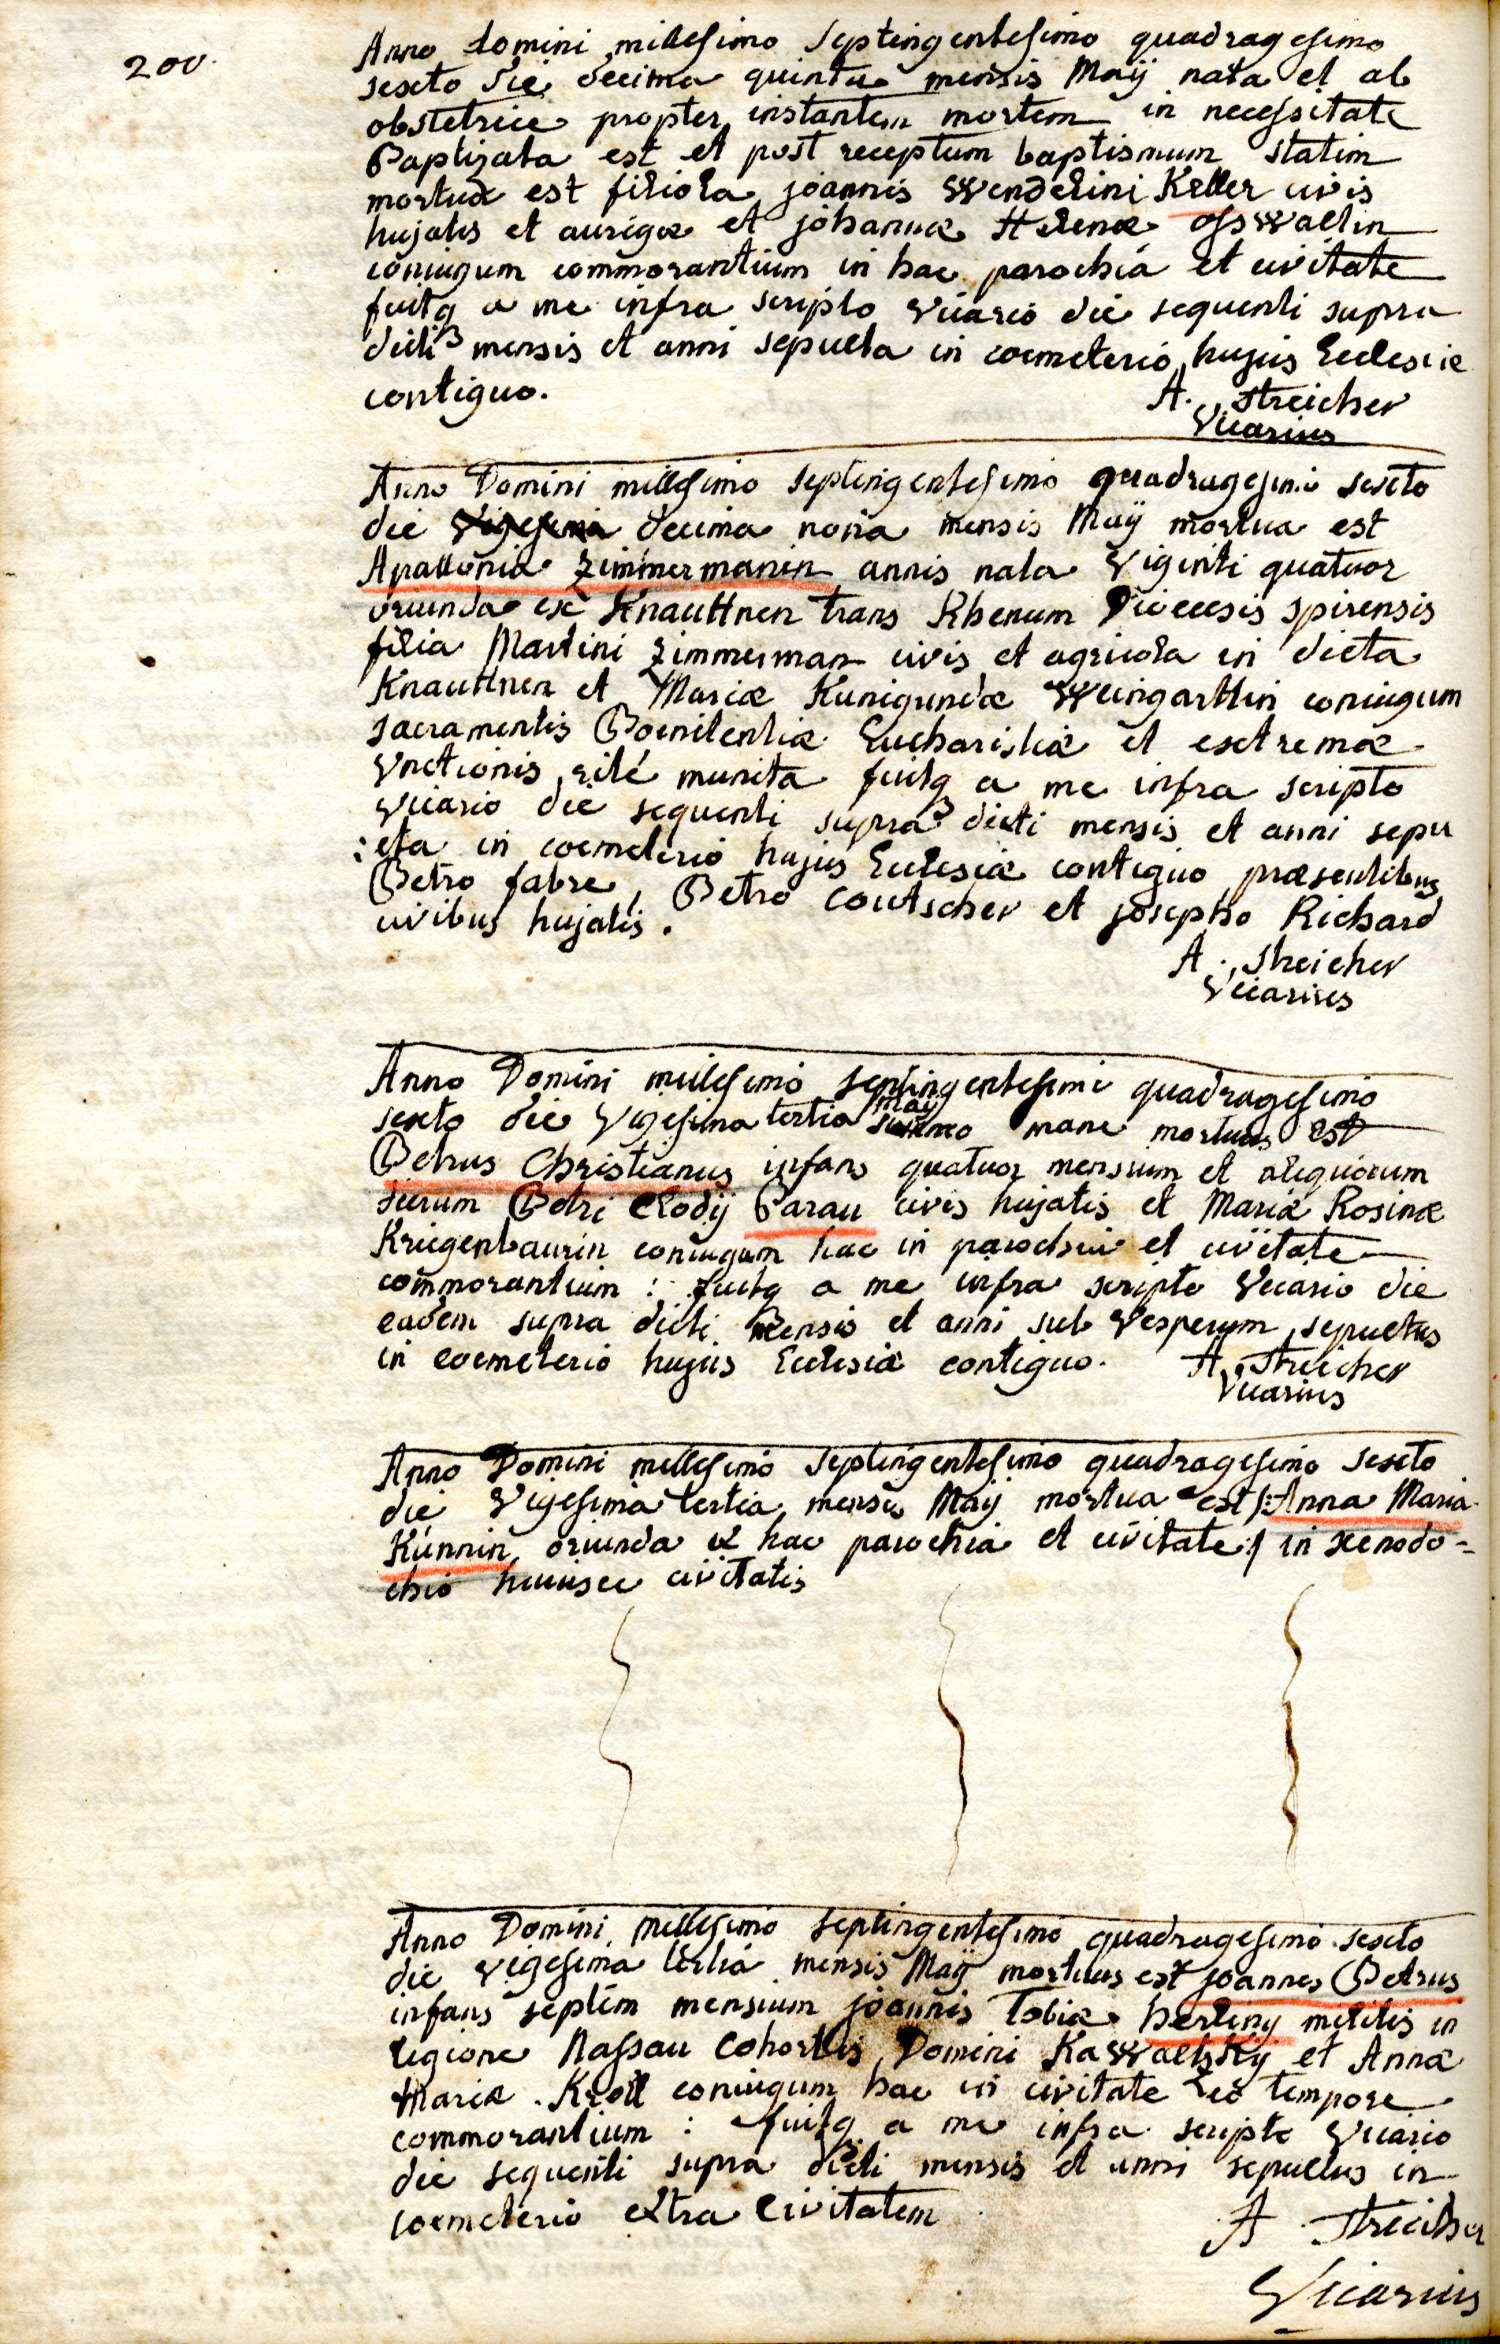 200.
Anno domini millesimo septingentesimo quadragesimo
sexto die decima quinta mensis Maÿ nata et ab
obstetrice propter instantem mortem in necessitate
Baptizata est et post receptum baptismum statim
mortua est filiola joannis Wendelini Keller civis
hujatis et aurigæ et johannæ Helenæ Osswaltin
coniugum commorantium in hac parochiá et civitate
fuitq a me infra scripto Vicario die sequenti supra
dicti mensis et anni sepulta in coemeterio hujus Ecclesiæ
contiguo.
A. Streicher
Vicarius
Anno Domini millesimo septingentesimo quadragesimo sexto
die decima nona mensis Maÿ mortua est
Apallonia Zimmermanin annis nata Viginti quatuor
oriunda ex Knauttnen trans Rhenum Dioecesis spirensis
filia Martini Zimmerman civis et agricola in dicta
Knauttnen et Mariæ Kunigundæ Weingarttin coniugum
sacramentis Poenitentiæ Eucharistiæ et extremæ
Vnctionis rité munita fuitq a me infra scripto
Vicario die sequenti supra dicti mensis et anni sepu
:lta in coemeterio hujus Ecclesiæ contiguo præsentibus
Petro fabre, Petro Coutscher et josepho Richard
civibus hujatis.
A. Streicher
Vicarius
Anno Domini millesimo septingentesimo quadragesimo
sexto die Vigesima tertia maÿ mane mortuus est
Petrus Christianus infans quatuor mensium et aliquorum
dierum Petri Clodÿ Parau civis hujatis et Mariæ Rosinæ
Kriegenbaurin coniugum hac in parochia et civitate
commorantium : fuitq a me infra scripto Vicario die
eadem supra dicti mensis et anni sub Vesperum sepultus
in coemeterio hujus Ecclesiæ contiguo.
A. Streicher
Vicarius
Anno Domini millesimo septingentesimo quadragesimo sexto
die Vigesima tertia mensis Maÿ mortua est /: Anna Maria
Kunnin, oriunda ex hac parochia et civitate :/ in xenodo=
chio huiusce civitatis
Anno Domini millesimo septingentesimo quadragesimo sexto
die vigesima tertia mensis Maÿ mortuus est joannes Petrus
infans septem mensium joannis Tobiæ Herting militis in
legione Nassau Cohortis Domini KaWaltskÿ et Annæ
Mariæ Kroll coniugum hac in civitate hoc tempore
commorantium : fuitq a me infra scripto Vicario
die sequenti supra dicti mensis et anni sepultus in
coemeterio extra Civitatem
A Streicher
Vicarius